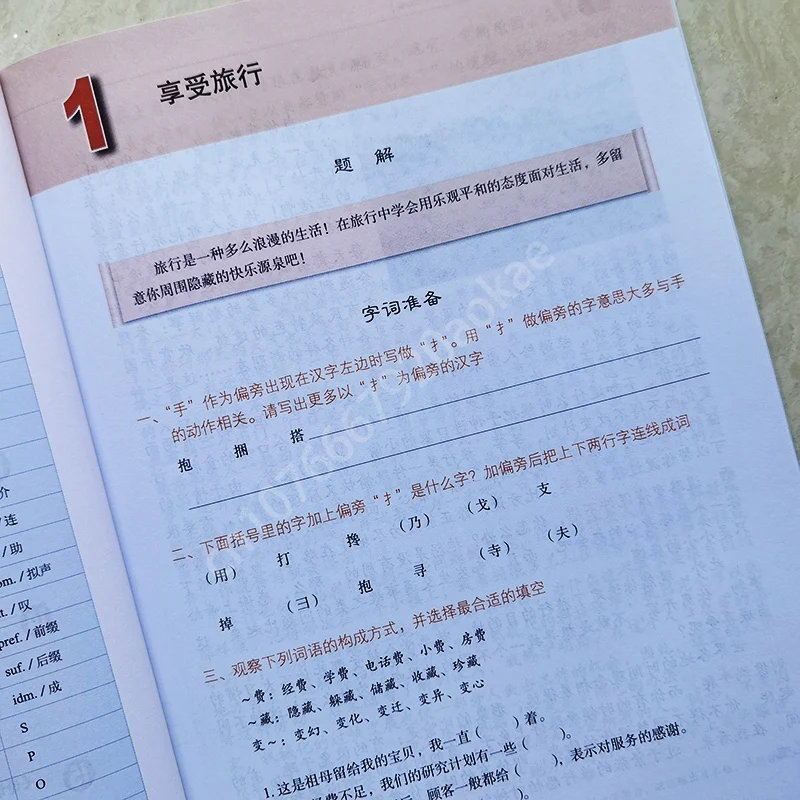 1 享受旅行
题 解
旅行是一种多么浪漫的生活！在旅行中学会用乐观平和的态度面对生活，多留
意你周围隐藏的快乐源泉吧！
字词准备
一、“手”作为偏旁出现在汉字左边时写做“扌”。用“扌”做偏旁的字意思大多与手
的动作相关。请写出更多以“扌”为偏旁的汉字
抱 捆 搭
二、下面括号里的字加上偏旁“扌”是什么字？加偏旁后把上下两行字连线成词
（用） 打 搀 （乃） （戈） 支
掉 （彐） 抱 寻 （寺） （夫）
三、观察下列词语的构成方式，并选择最合适的填空
～费：经费、学费、电话费、小费、房费
～藏：隐藏、躲藏、储藏、收藏、珍藏
变～：变幻、变化、变迁、变异、变心
1. 这是祖母留给我的宝贝，我一直（ ）着。
费不足，我们的研究计划有一些（ ）。
顾客一般都给（ ），表示对服务的感谢。
介
/ 连
/ 助
om. / 拟声
t. / 叹
pref. / 前缀
suf. / 后缀
idm. / 成
S
P
O